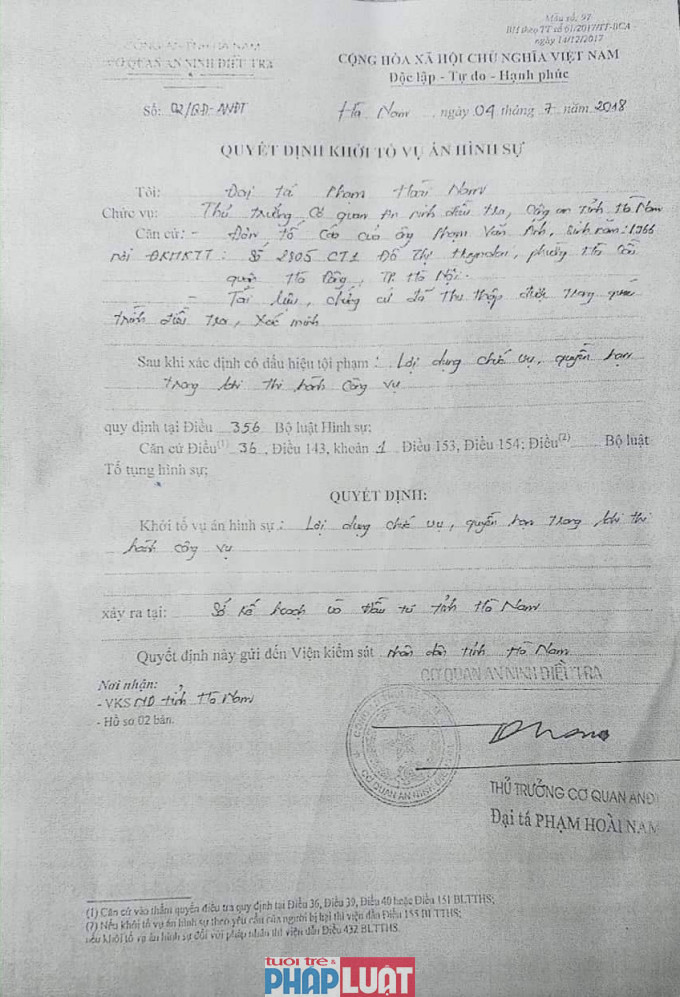 Mẫu số: 97
BH theo TT số 61/2017/TT-BCA
ngày 14/12/2017
CÔNG AN TỈNH HÀ NAM
CƠ QUAN AN NINH ĐIỀU TRA
CỘNG HÒA XÃ HỘI CHỦ NGHĨA VIỆT NAM
Độc lập - Tự do - Hạnh phúc
Số: 02/QĐ-ANĐT
Hà Nam, ngày 04 tháng 7 năm 2018
QUYẾT ĐỊNH KHỞI TỐ VỤ ÁN HÌNH SỰ
Tôi: Đại tá Phạm Hoài Nam
Chức vụ: Thủ trưởng Cơ quan An ninh điều tra, Công an tỉnh Hà Nam
Căn cứ: - Đơn tố cáo của ông Phạm Văn Anh, sinh năm: 1966
nơi ĐKHKTT: Số 2805 CT1 Đô Thị Hyundai, phường Hà Cầu
quận Hà Đông, TP. Hà Nội.
- Tài liệu, chứng cứ đã thu thập được trong quá
trình điều tra, xác minh
Sau khi xác định có dấu hiệu tội phạm: Lợi dụng chức vụ, quyền hạn
trong khi thi hành công vụ
quy định tại Điều 356 Bộ luật Hình sự;
Căn cứ Điều(1) 36, Điều 143, khoản 1 Điều 153, Điều 154; Điều(2) Bộ luật
Tố tụng hình sự;
QUYẾT ĐỊNH:
Khởi tố vụ án hình sự: Lợi dụng chức vụ, quyền hạn trong khi thi
hành công vụ
xảy ra tại: Sở Kế hoạch và Đầu tư tỉnh Hà Nam
Quyết định này gửi đến Viện kiểm sát nhân dân tỉnh Hà Nam
Nơi nhận:
- VKS ND tỉnh Hà Nam
- Hồ sơ 02 bản.
CƠ QUAN AN NINH ĐIỀU TRA
THỦ TRƯỞNG CƠ QUAN ANĐT
Đại tá PHẠM HOÀI NAM
(1) Căn cứ vào thẩm quyền điều tra quy định tại Điều 36, Điều 39, Điều 40 hoặc Điều 151 BLTTHS;
(2) Nếu khởi tố vụ án hình sự theo yêu cầu của người bị hại thì viện dẫn Điều 155 BLTTHS;
nếu khởi tố vụ án hình sự đối với pháp nhân thì viện dẫn Điều 432 BLTTHS.
tuổi trẻ &
PHÁP LUẬT